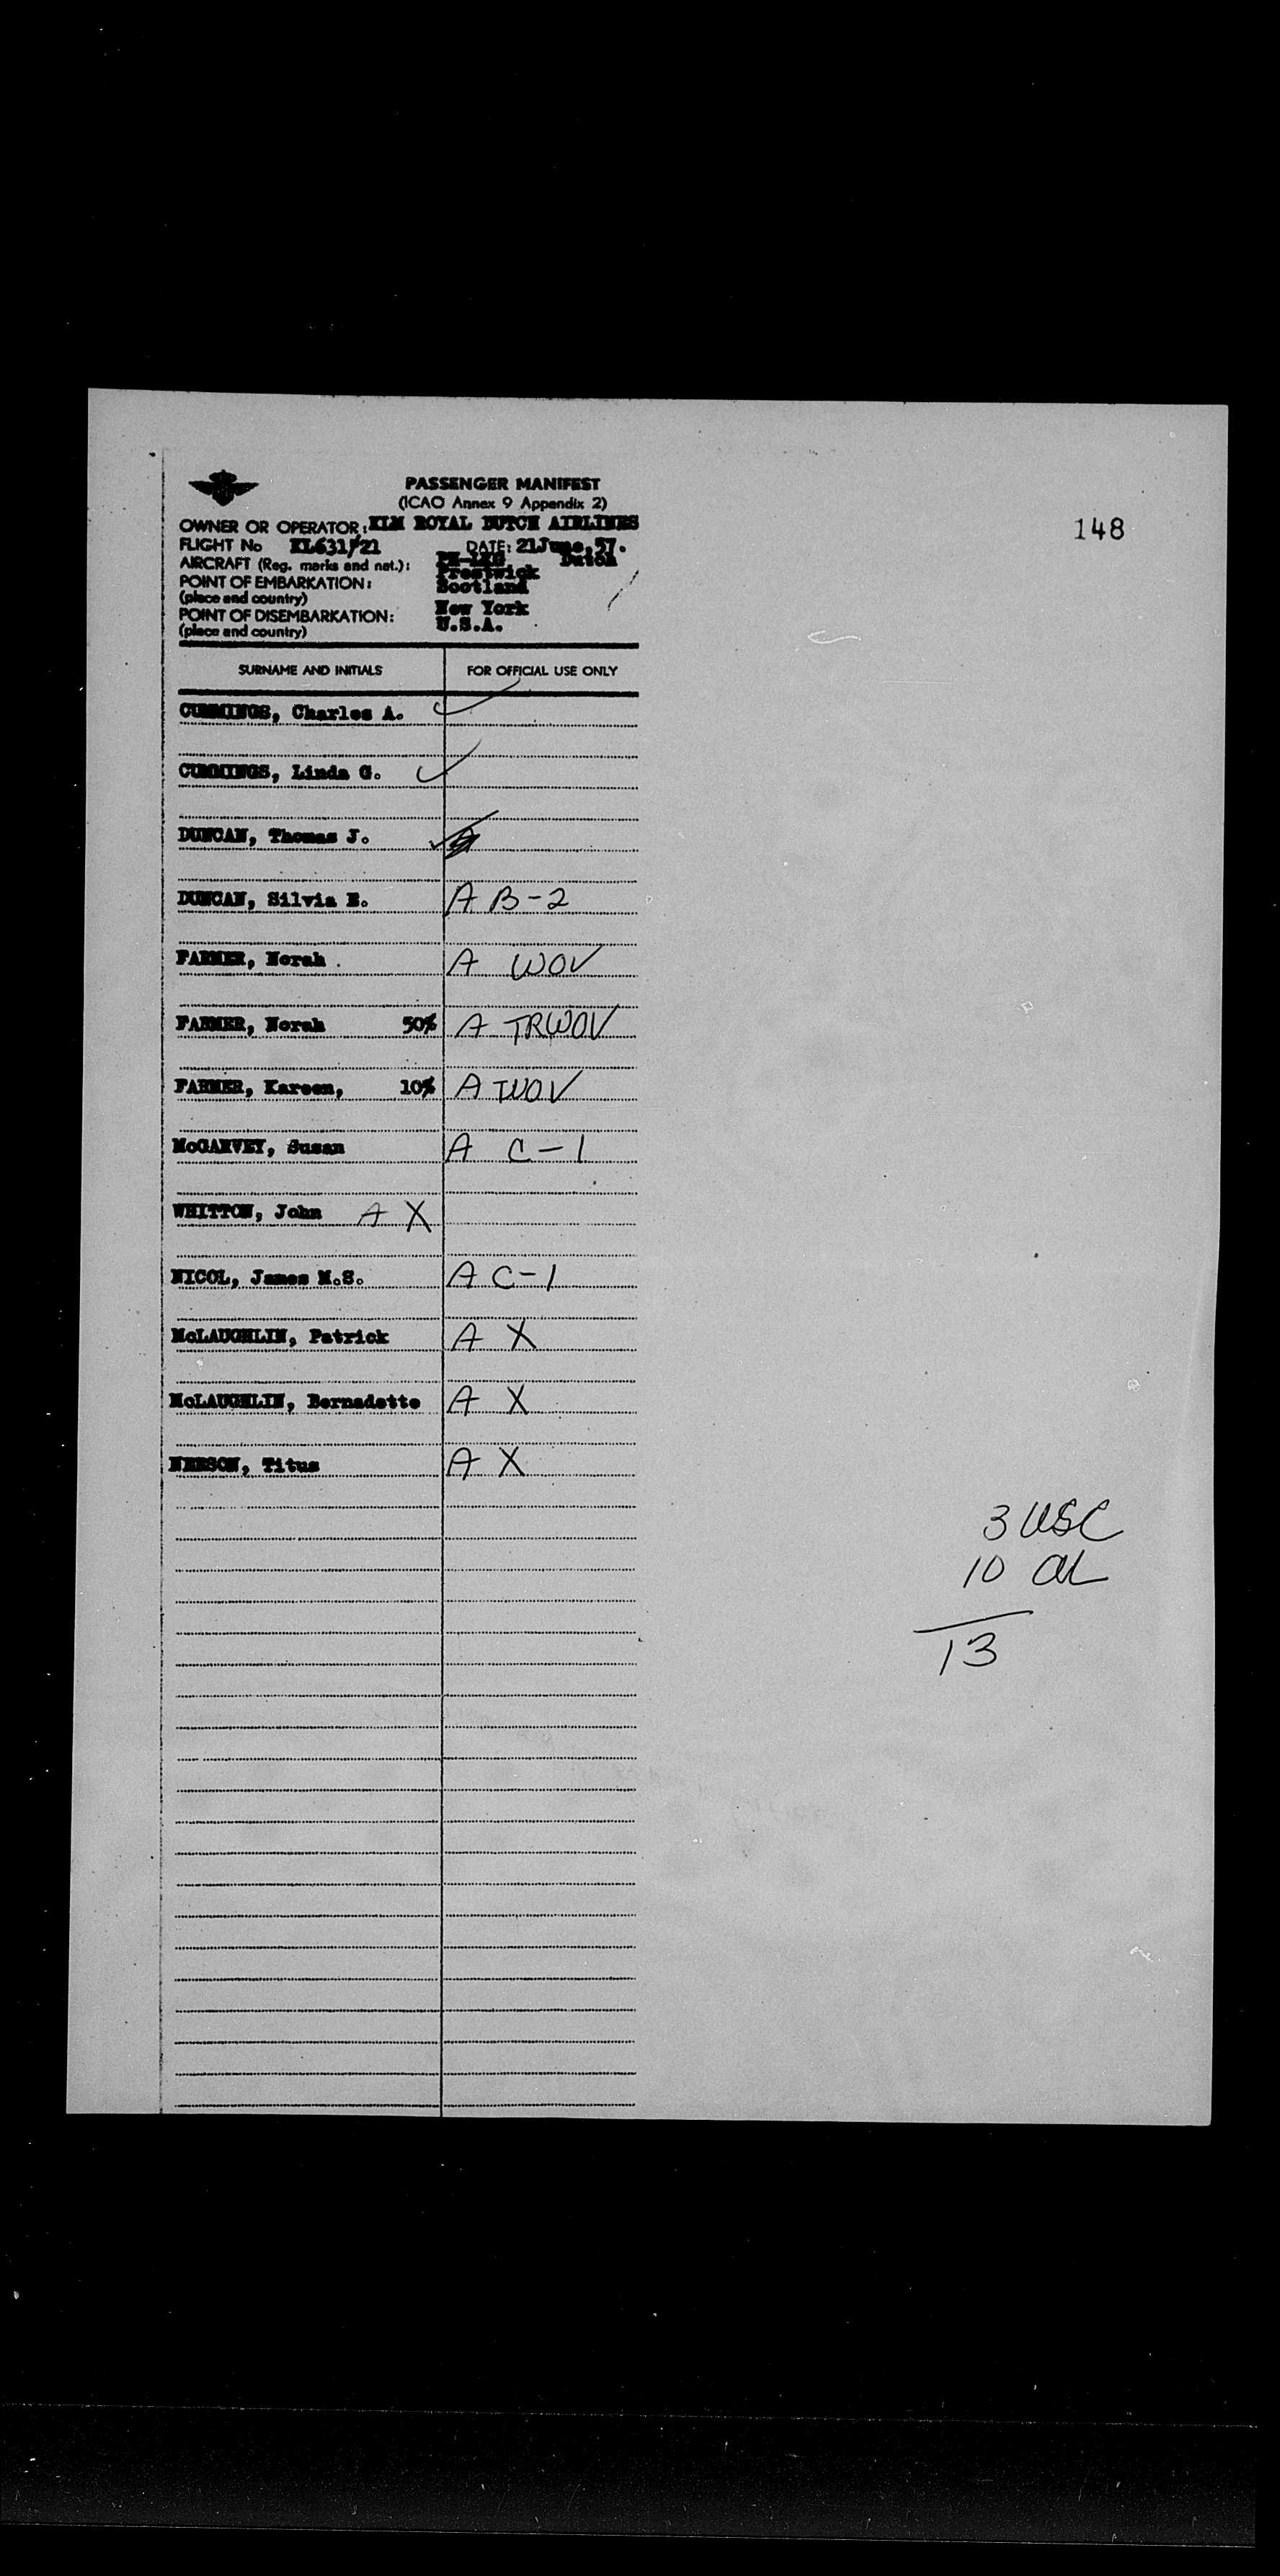 PASSENGER MANIFEST
(ICAO Annex 9 Appendix 2)
148
OWNER OR OPERATOR: KLM ROYAL DUTCH AIRLINES
FLIGHT No KL631/21 DATE: 21June.57.
AIRCRAFT (Reg. marks and nat.): Dutch
POINT OF EMBARKATION: Prestwick
(place and country) Scotland
POINT OF DISEMBARKATION: New York
(place and country) U.S.A.
SURNAME AND INITIALS FOR OFFICIAL USE ONLY
CUMMINGS, Charles A.
CUMMINGS, Linda G.
DUNCAN, Thomas J.
DUNCAN, Silvia E. A B-2
FARMER, Norah A WOV
FARMER, Norah 50% A TRWOV
FARMER, Kareen, 10% A TWOV
McGARVEY, Susan A C-1
WHITTON, John A X
NICOL, James M.S. A C-1
McLAUGHLIN, Patrick A X
McLAUGHLIN, Bernadette A X
Titus A X
3 USC
10 AL
13